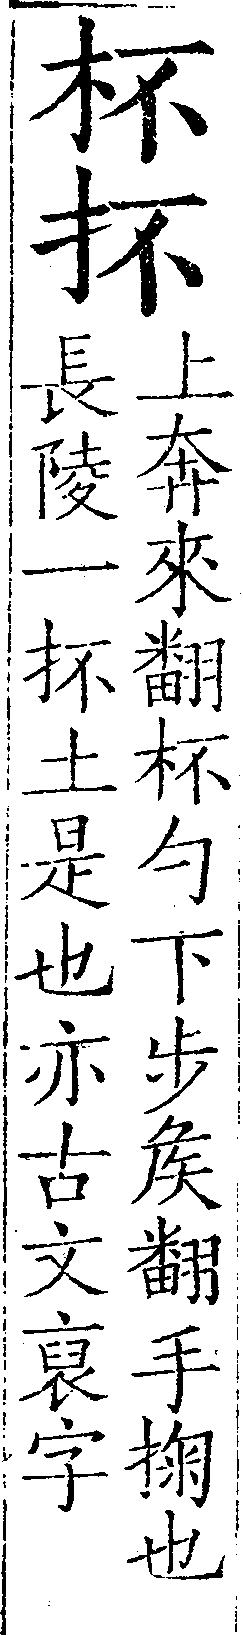 杯抔
上奔來翻杯勺下步矦翻手掬也
長陵一抔土是也亦古文裒字